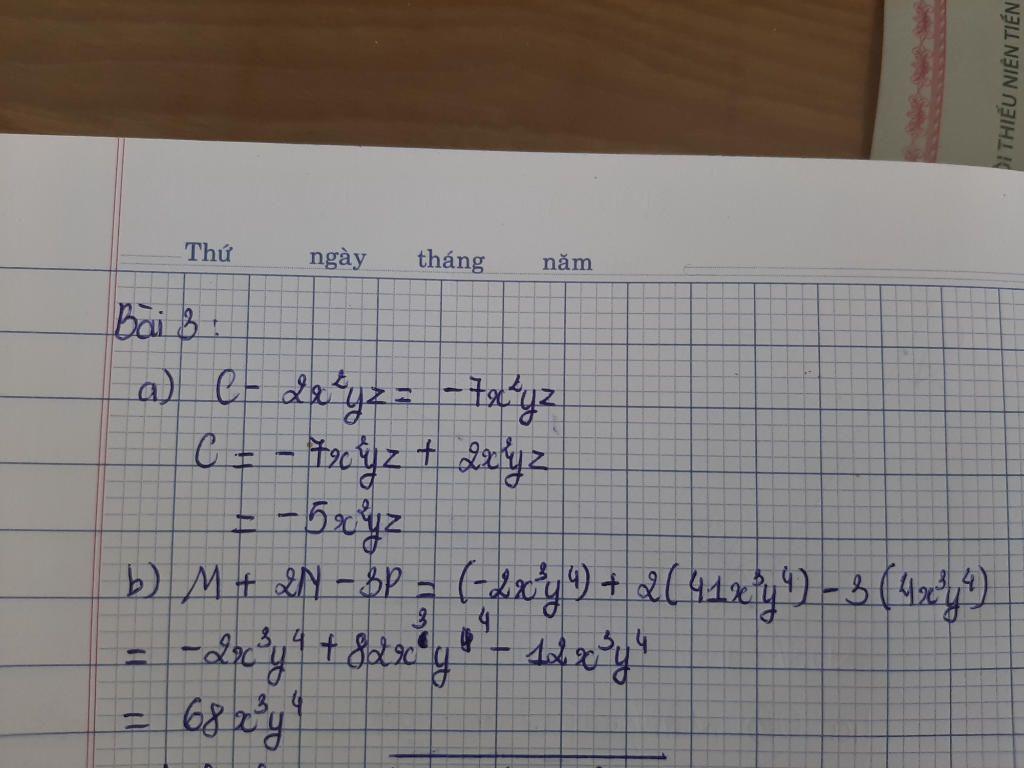 ỘI THIẾU NIÊN TIỀN
Thứ ngày tháng năm
Bài 3 :
a) C - 2x²yz = -7x²yz
C = -7x²yz + 2x²yz
= -5x²yz
b) M + 2N - 3P = (-2x³y⁴) + 2(41x³y⁴) - 3(4x³y⁴)
= -2x³y⁴ + 82x³y⁴ - 12x³y⁴
= 68x³y⁴